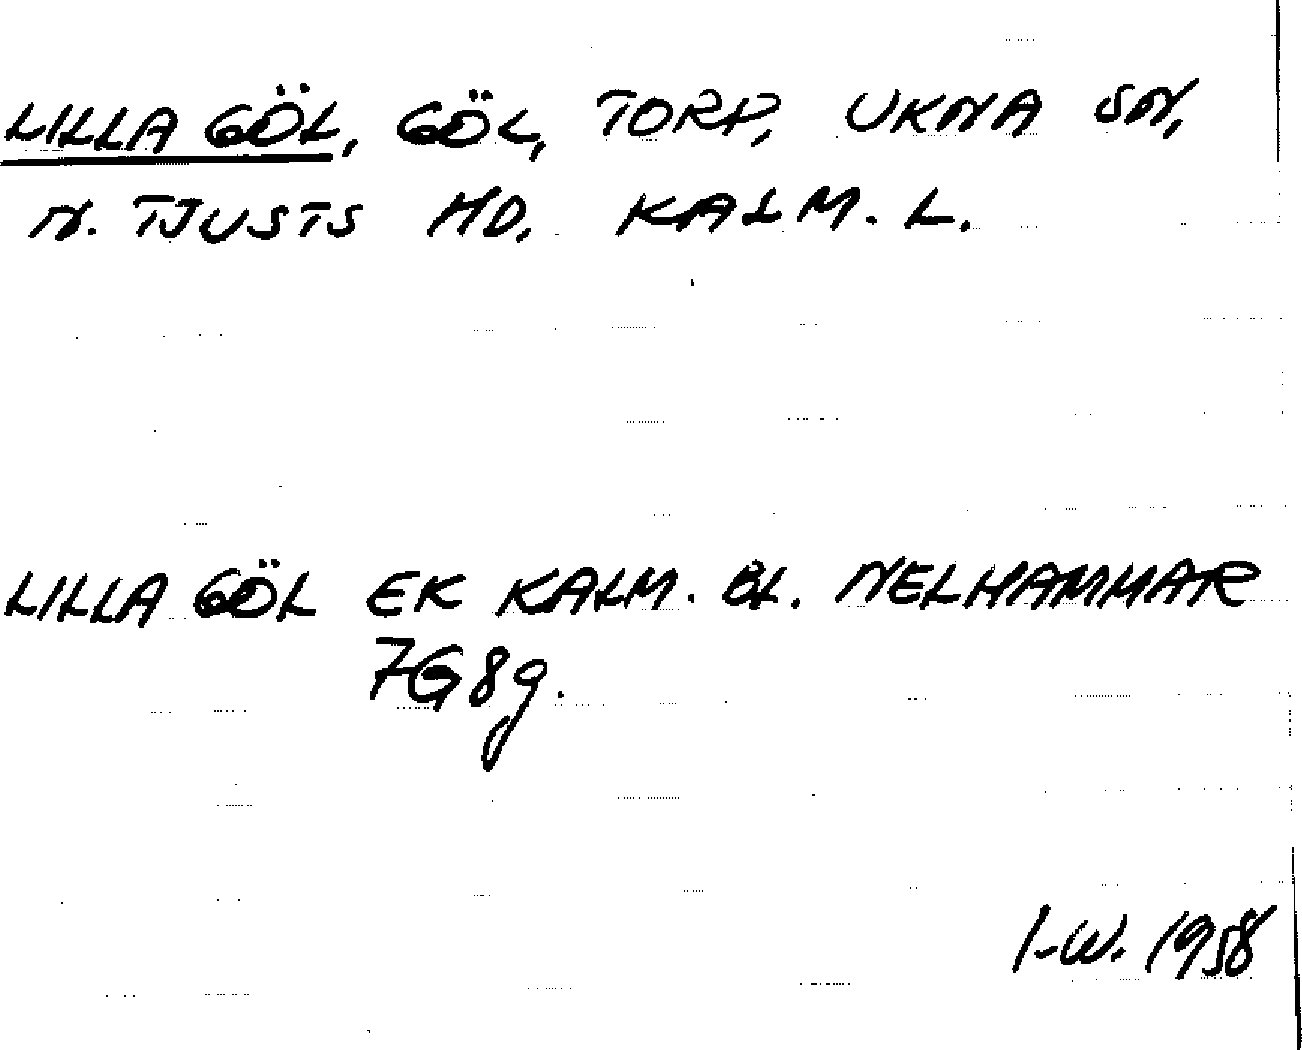 LILLA GÖL, GÖL, TORP, UKNA SN,
N. TJUSTS HD. KALM. L.
LILLA GÖL EK KALM. BL. NELHAMMAR
7G8g.
I-W. 1958